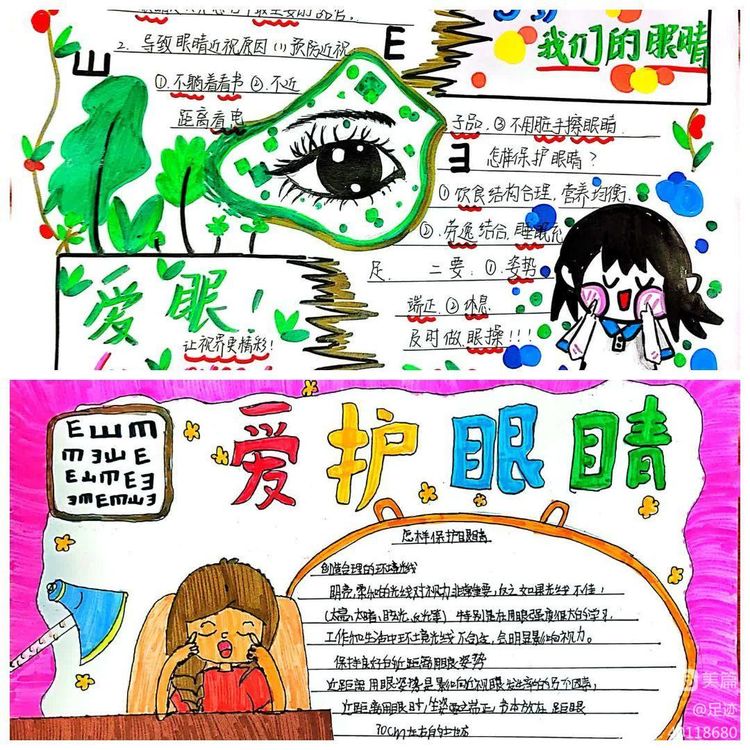 2. 导致眼睛近视原因 (1) 预防近视
E
E
E
①不躺着看书 ②.不近
距离看电
我们的眼睛
子品.③不用脏手擦眼睛.
怎样保护眼睛?
①饮食结构合理,营养均衡.
②.劳逸结合,睡眠充
足. 二要:①.姿势
端正.②休息
及时做.眼操!!!
爱眼!
让视界更精彩!
爱护眼睛
E E E
E E E E
E E E E E
E E E E E E
怎样保护眼睛
创造合理的环境光线
明亮,柔和的光线对视力非常重要,反之如果光线不佳,
(太高、太暗、眩光、反光等) 特别是在用眼强度很大的学习
工作和生活中环境光线不合适,会明显影响视力。
保持良好的近距离用眼姿势
近距离用眼姿势是影响近视眼发生率的另个因素,
近距离用眼时,坐姿要端正,书本放在距眼
30cm左右
美篇
@足迹
40118680